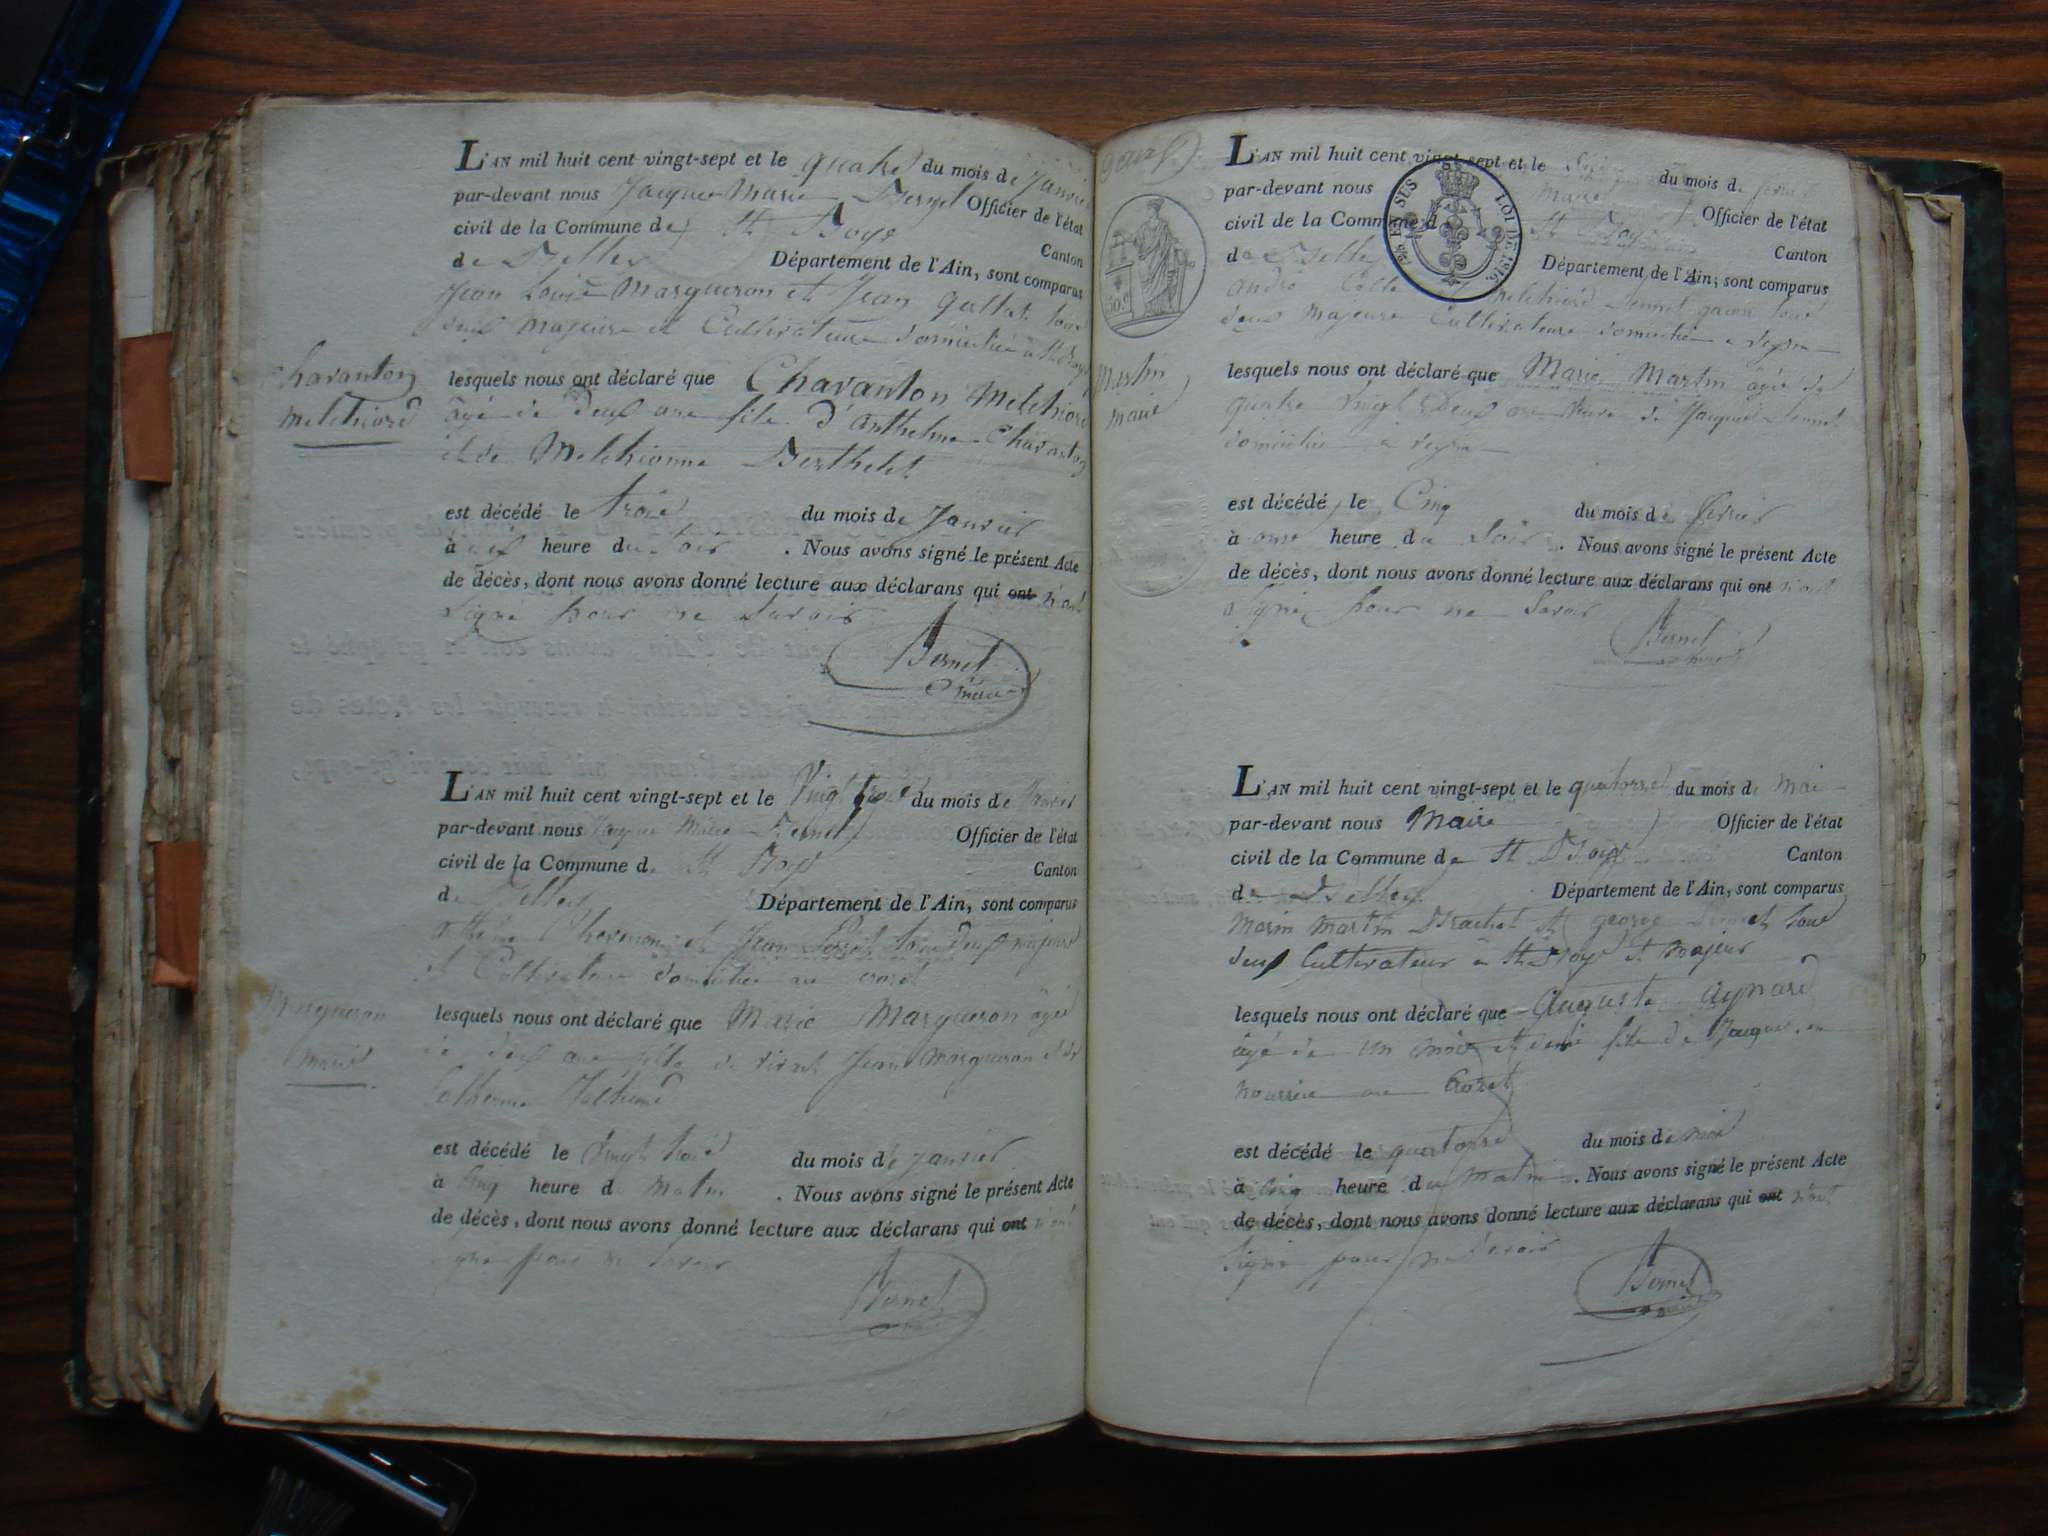 L'AN mil huit cent vingt-sept et le quatre du mois de Janvier
par-devant nous Jacque Marie Bernel Officier de l'état
civil de la Commune de St Boys Canton
de Belley Département de l'Ain, sont comparus
Jean Louis Margueron et Jean tous
deux Majeurs et Cultivateurs domicilié à St Boys
Chavanton
Melchiord
lesquels nous ont déclaré que Chavanton Melchiord
âgé de deux ans fils d'Anthelme Chavanton
et de Melchionne Berthelet
est décédé le trois du mois de Janvier
à heure du Soir . Nous avons signé le présent Acte
de décès, dont nous avons donné lecture aux déclarans qui ont n'ont
Signé pour ne Savoir
Bernel
maire
L'AN mil huit cent vingt-sept et le Vingt trois du mois de Janvier
par-devant nous Jacque Marie Bernel Officier de l'état
civil de la Commune de St Boys Canton
de Belley Département de l'Ain, sont comparus
et Jean tous deux majeurs
et Cultivateurs domicilié au crozet
Margueron
Marie
lesquels nous ont déclaré que Marie Margueron âgée
de deux ans fille de vivant Jean Margueron et de
Catherine
est décédé le Vingt trois du mois de Janvier
à Cinq heure du Matin . Nous avons signé le présent Acte
de décès, dont nous avons donné lecture aux déclarans qui ont n'ont
signé pour ne Savoir
Bernel
maire
L'AN mil huit cent vingt-sept et le du mois de fevrier
par-devant nous Maire Officier de l'état
civil de la Commune de St Boys Canton
de Belley Département de l'Ain, sont comparus
André et Melchiord tous
deux Majeurs Cultivateurs domicilié a
30 c
LOI DE 1816.
Martin
Marie
lesquels nous ont déclaré que Marie Martin âgée de
quatre Vingt deux ans veuve de Jacques
domiciliée à
est décédé le Cinq du mois de fevrier
à onze heure du Soir . Nous avons signé le présent Acte
de décès, dont nous avons donné lecture aux déclarans qui ont n'ont
Signé pour ne Savoir
Bernel
maire
L'AN mil huit cent vingt-sept et le quatorze du mois de Mai
par-devant nous Maire Officier de l'état
civil de la Commune de St Boys Canton
de Belley Département de l'Ain, sont comparus
Marin Martin Brachet et george tous
deux Cultivateur à St Boys et Majeur
lesquels nous ont déclaré que Auguste Aynard
âgé de un mois et demi fils de Jacque en
nourrice au Crozet
est décédé le quatorze du mois de mai
à Cinq heure du Matin . Nous avons signé le présent Acte
de décès, dont nous avons donné lecture aux déclarans qui ont n'ont
Signé pour ne Savoir
Bernel
maire